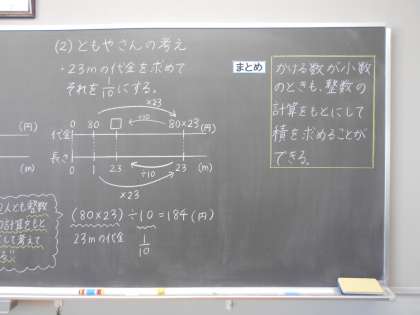 (2) ともやさんの考え
・23mの代金を求めて
それを1/10にする。
×23
÷10
(円)
代金 0 80 □ 80×23 (円)
(m)
長さ 0 1 2.3 23 (m)
÷10
×23
(80×23)÷10=184(円)
23mの代金 1/10
2人とも整数
の計算をもと
にして考えて
いる!!
まとめ
かける数が小数
のときも、整数の
計算をもとにして
積を求めることが
できる。